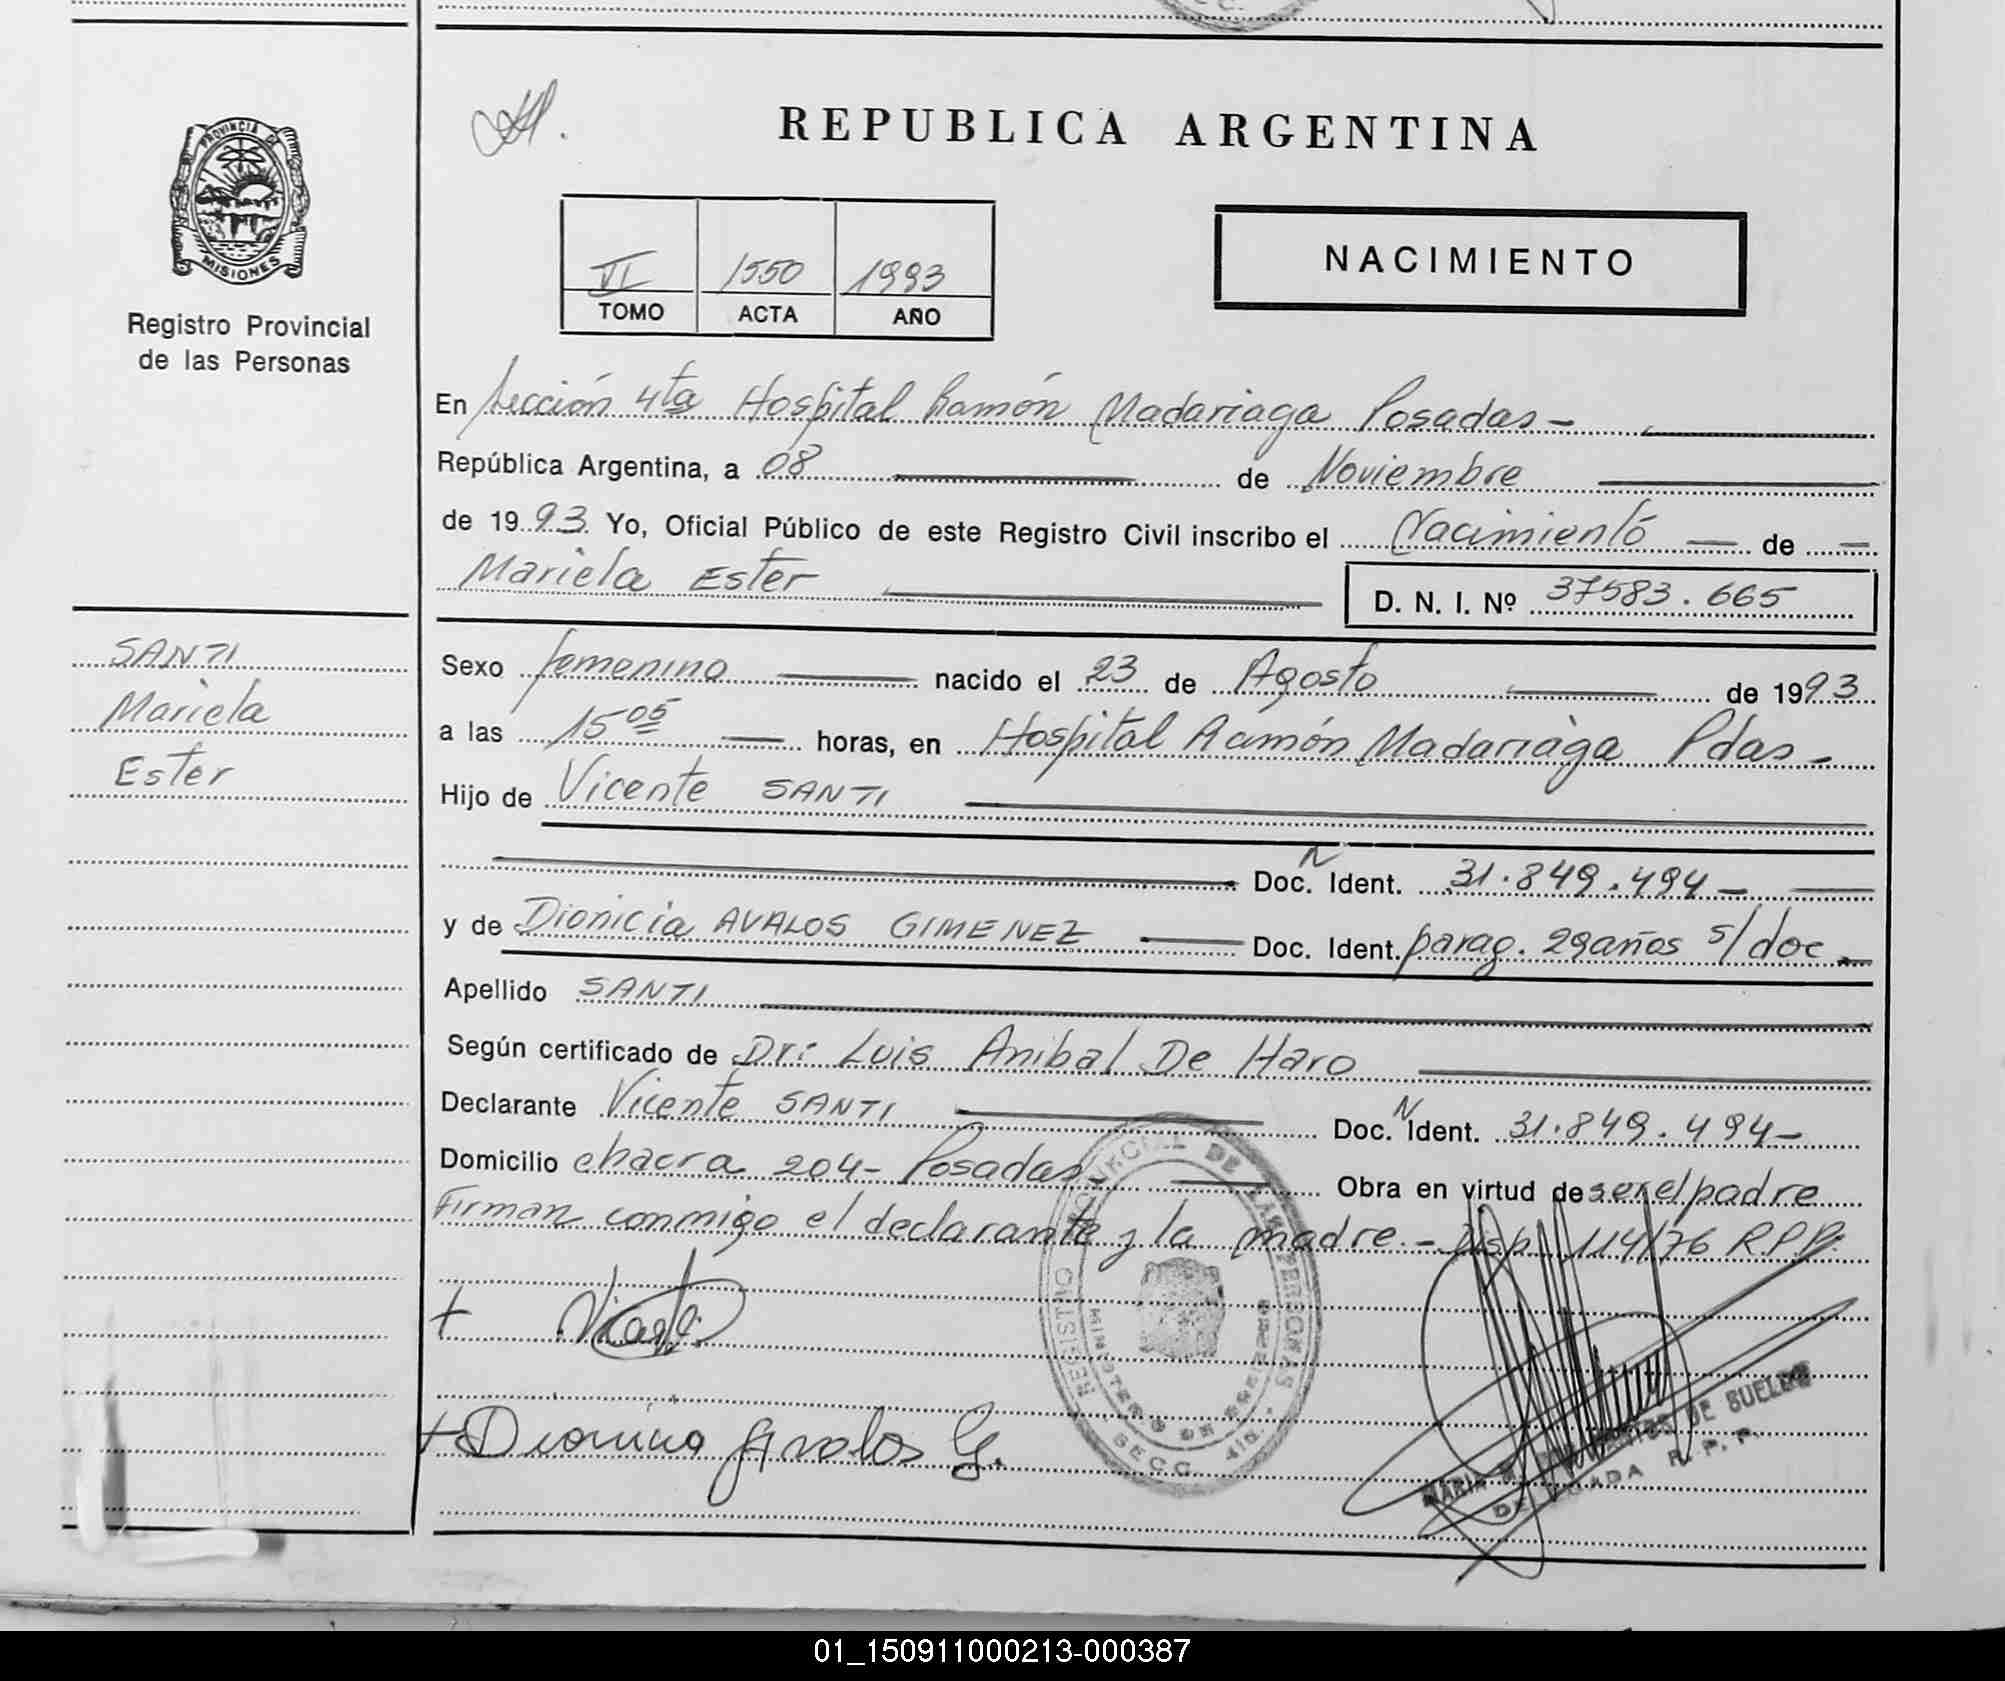 PROVINCIA DE
MISIONES
Registro Provincial
de las Personas
SANTI
Mariela
Ester
REPUBLICA ARGENTINA
VI 1550 1993
TOMO ACTA AÑO
NACIMIENTO
En Sección 4ta Hospital Ramón Madariaga Posadas -
República Argentina, a 08 de Noviembre
de 1993. Yo, Oficial Público de este Registro Civil inscribo el Nacimiento de
Mariela Ester D. N. I. Nº 37583.665
Sexo femenino nacido el 23 de Agosto de 1993
a las 15 05 horas, en Hospital Ramón Madariaga Pdas -
Hijo de Vicente SANTI
Doc. N Ident. 31.849.494 -
y de Dionicia AVALOS GIMENEZ Doc. Ident. parag. 29 años s/doc -
Apellido SANTI
Según certificado de Dr: Luis Anibal De Haro
Declarante Vicente SANTI Doc. N Ident. 31.849.494 -
Domicilio chacra 204 - Posadas Obra en virtud de ser el padre
Firman conmigo el declarante y la madre. - Disp. 114/76 RPP.
+ Vicente
+ Dionicia Avalos G.
REGISTRO PROVINCIAL DE LAS PERSONAS
MINISTERIO DE GOBIERNO
SECC. 4ta.
MARIA DE SUELDO
R. P. P.
01_150911000213-000387